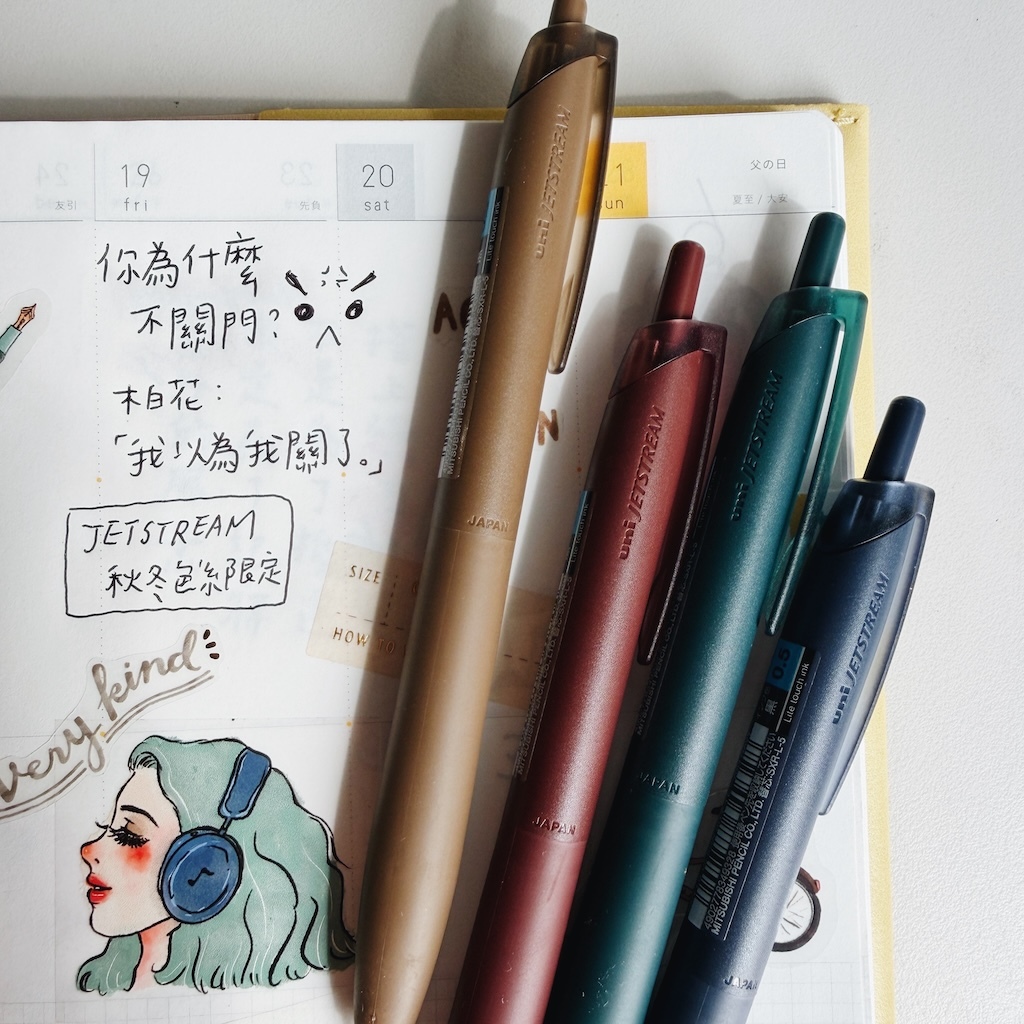 19
fri
友引
23
先負
20
sat
父の日
夏至 / 大安
24
你為什麼
不關門?
柏花:
「我以為我關了。」
JETSTREAM
秋冬色系限定
very kind
SIZE
HOW TO
uni JETSTREAM
JAPAN
Lite touch ink
MITSUBISHI PENCIL CO., LTD.
uni JETSTREAM
JAPAN
uni JETSTREAM
JAPAN
uni JETSTREAM
0.5
黒
Lite touch ink
MITSUBISHI PENCIL CO., LTD. 替芯:SXR-L-5
JAPAN